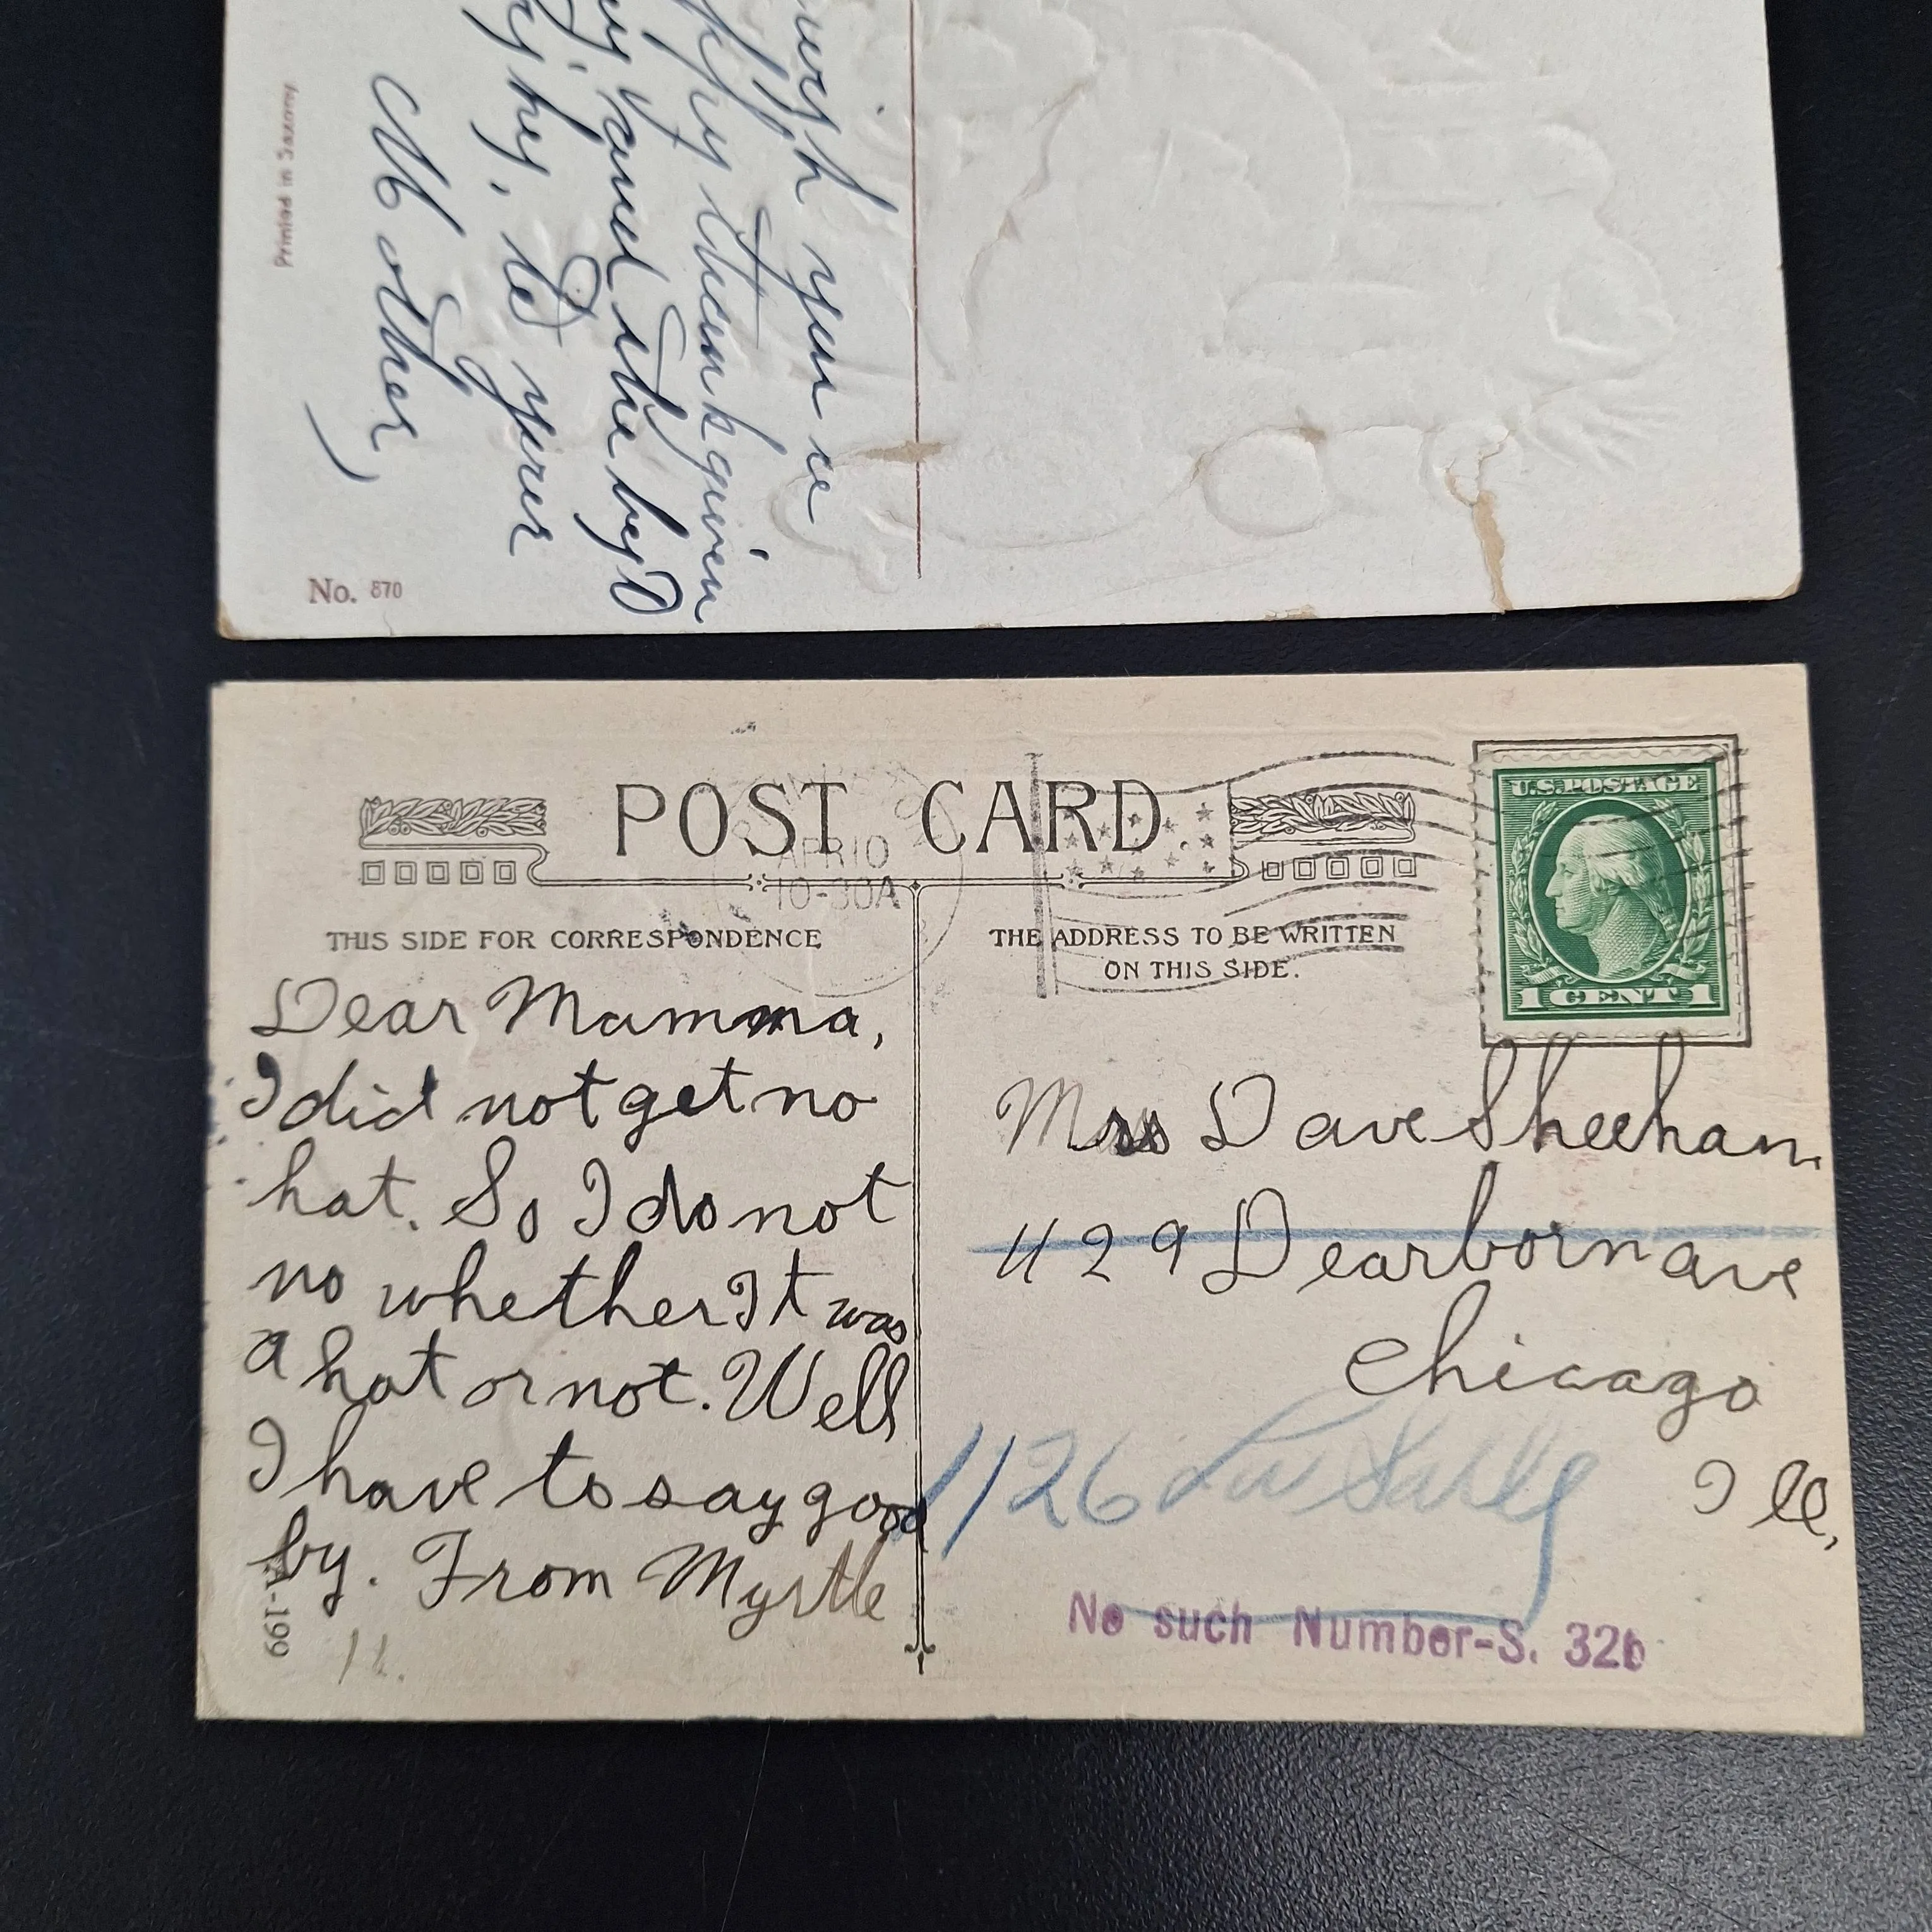 wish you a
thankgiven
and the by
to your
Mother,
Printed in Saxony
No. 870
POST CARD.
APR 10
10-30A
U.S. POSTAGE
1 CENT 1
THIS SIDE FOR CORRESPONDENCE
THE ADDRESS TO BE WRITTEN
ON THIS SIDE.
Dear Mamma,
I did not get no
hat. So I do not
no whether It was
a hat or not. Well
I have to say good
by. From Myrtle
A-199
11.
Mrs Dave Sheehan.
429 Dearborn ave
Chicago
Ill,
1126 La Salle
No such Number-S. 326